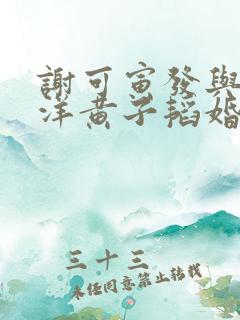 謝可寅發與
洋黃子韜婚
三十三
未經同意禁止轉載